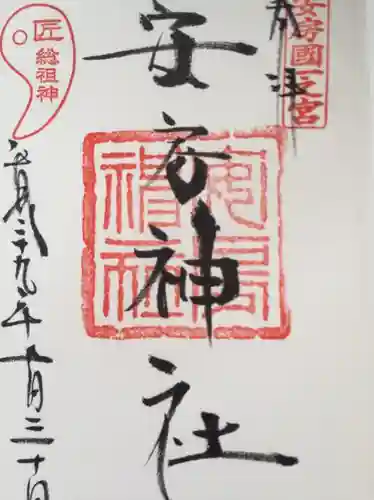 安房國一之宮
奉拝
安房神社
匠
総祖神
平成二十九年十月三十日